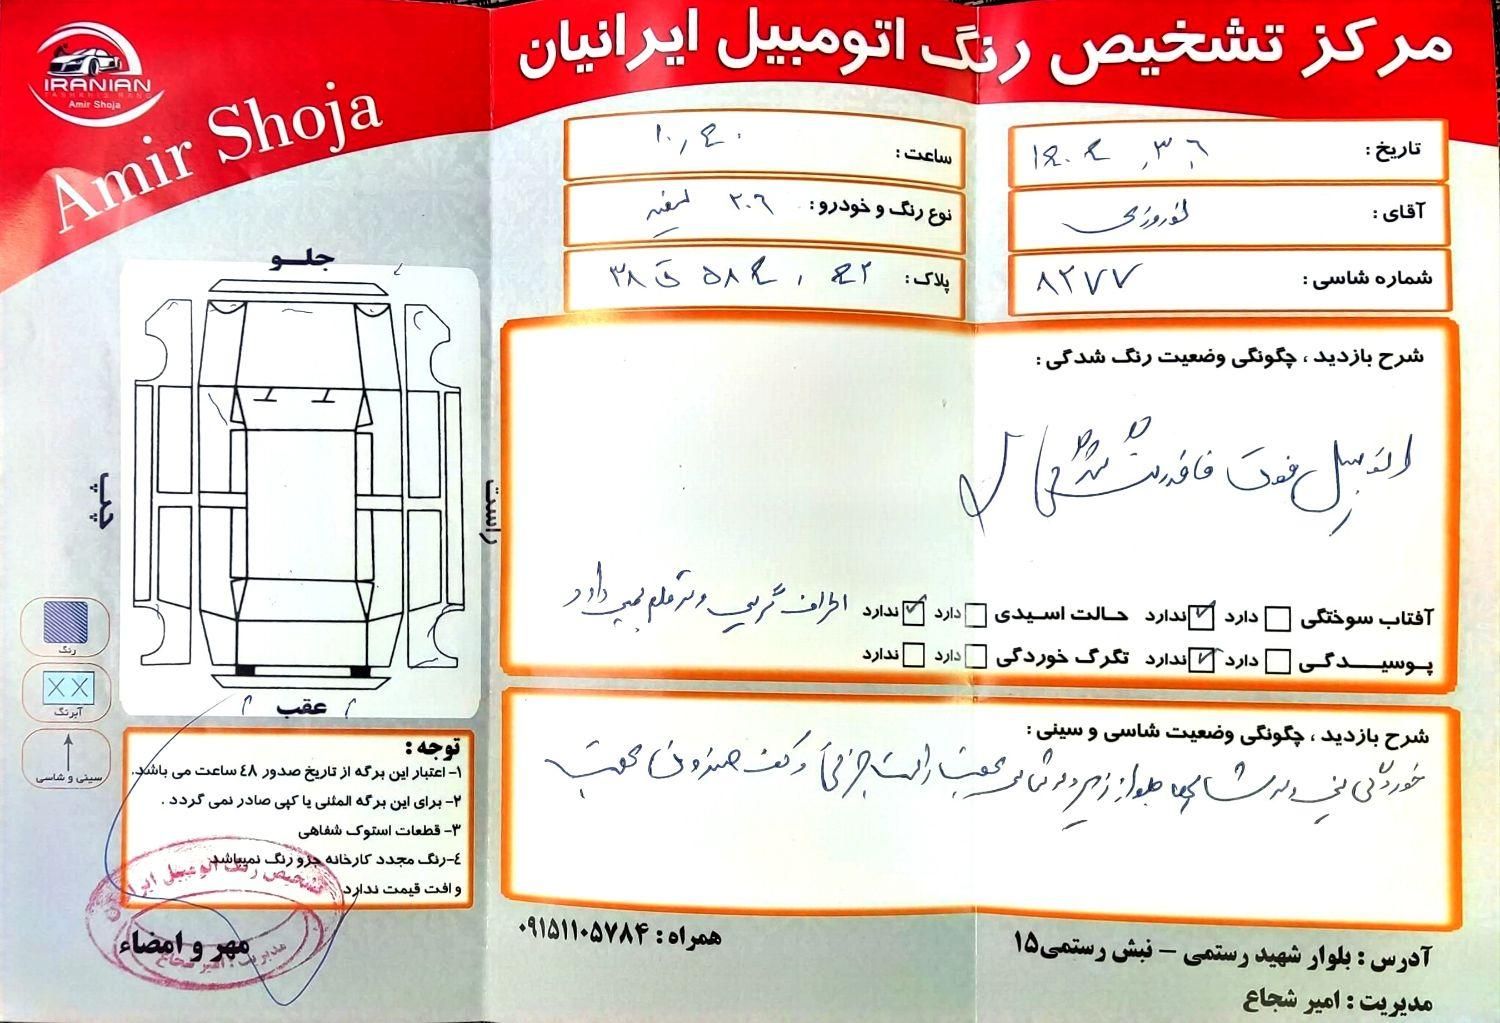 مرکز تشخیص رنگ اتومبیل ایرانیان
IRANIAN
TASHKHIS RANG
Amir Shoja
Amir Shoja
تاریخ :
ساعت : ۱۰٫۴۰
آقای : نوروزی
نوع رنگ و خودرو : ۲۰۶ سفید
شماره شاسی : ۸۲۷۷
پلاک :
شرح بازدید ، چگونگی وضعیت رنگ شدگی :
اتومبیل فوق فاقد رنگ شدگی
آفتاب سوختگی دارد ندارد حالت اسیدی دارد ندارد
پوسیدگی دارد ندارد تگرگ خوردگی دارد ندارد
اطراف گریل و قلم دارد
شرح بازدید ، چگونگی وضعیت شاسی و سینی :
خوردگی سینی و سر شاسی جلو از زیر و عقب راست جزئی و کف صندوق عقب
جلو
چپ
راست
عقب
رنگ
آبرنگ
سینی و شاسی
توجه :
۱- اعتبار این برگه از تاریخ صدور ۴۸ ساعت می باشد.
۲- برای این برگه المثنی یا کپی صادر نمی گردد .
۳- قطعات استوک شفاهی
۴- رنگ مجدد کارخانه جزو رنگ نمیباشد
و افت قیمت ندارد
مهر و امضاء
تشخیص رنگ اتومبیل
مدیریت : امیر شجاع
همراه : ۰۹۱۵۱۱۰۵۷۸۴
آدرس : بلوار شهید رستمی – نبش رستمی۱۵
مدیریت : امیر شجاع